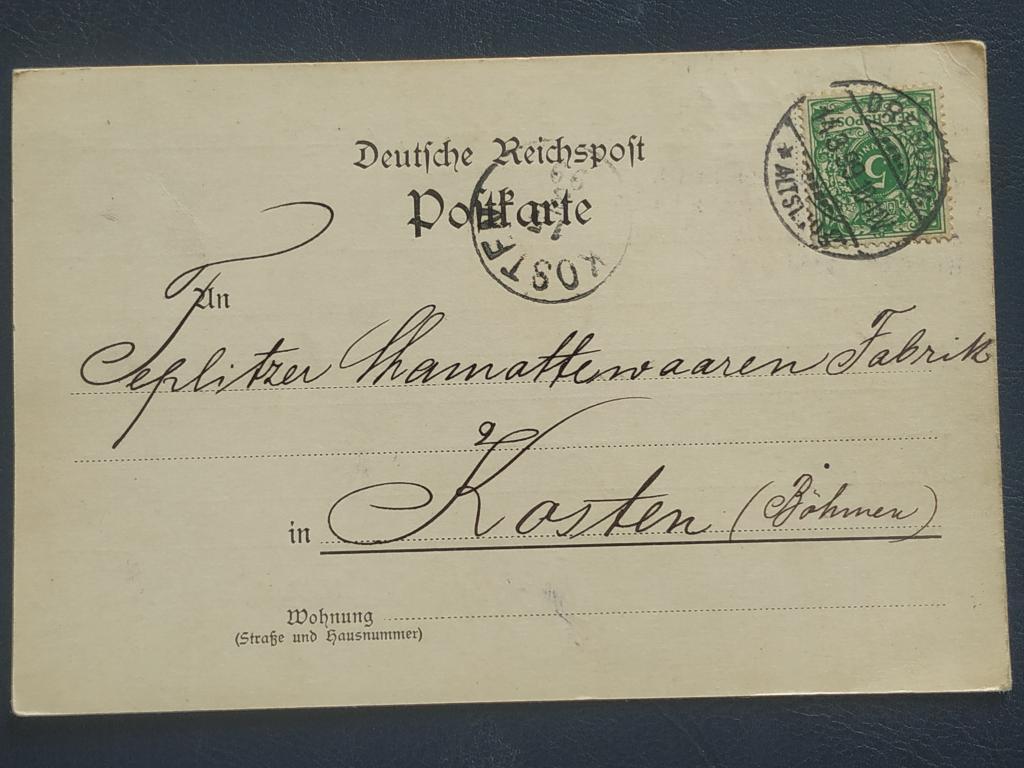 Deutsche Reichspost
Postkarte
KOSTEN
REICHSPOST
5
An
Teplitzer Chamottewaaren Fabrik
in Kosten (Böhmen)
Wohnung
(Straße und Hausnummer)